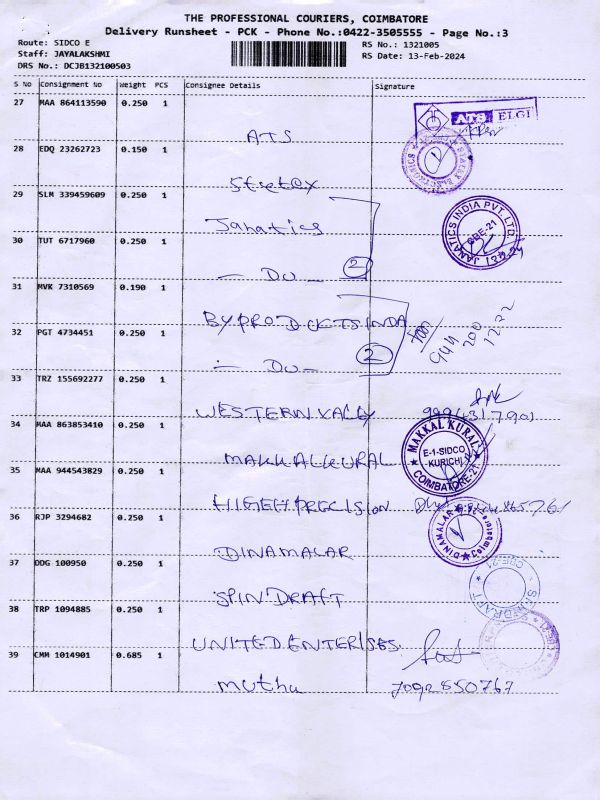 THE PROFESSIONAL COURIERS, COIMBATORE
Delivery Runsheet - PCK - Phone No.:0422-3505555 - Page No.:3
Route: SIDCO E
RS No.: 1321005
Staff: JAYALAKSHMI
RS Date: 13-Feb-2024
DRS No.: DCJB132100503
S No Consignment No Weight PCS Consignee Details Signature
27 MAA 864113590 0.250 1
ATS ELGI
ATS
28 EDQ 23262723 0.150 1
29 SLM 339459609 0.250 1
Janatics
JANATICS INDIA PVT. LTD. CBE-21
30 TUT 6717960 0.250 1
- Do - 2
31 MVK 7310569 0.190 1
BYPRODUCTS INDA
944
200
1272
32 PGT 4734451 0.250 1
- Do - 2
33 TRZ 155692277 0.250 1
WESTERN VALLY
34 MAA 863853410 0.250 1
MAKKAL KURAL
MAKKAL KURAL E-1-SIDCO KURICHI COIMBATORE-21
35 MAA 944543829 0.250 1
HIGH PRECISION
36 RJP 3294682 0.250 1
DINAMALAR
DINAMALAR Coimbatore
37 DDG 100950 0.250 1
SPIN DRAFT
CBE-21
38 TRP 1094885 0.250 1
UNITED ENTERISES
39 CMM 1014901 0.685 1
muthu 7092850767